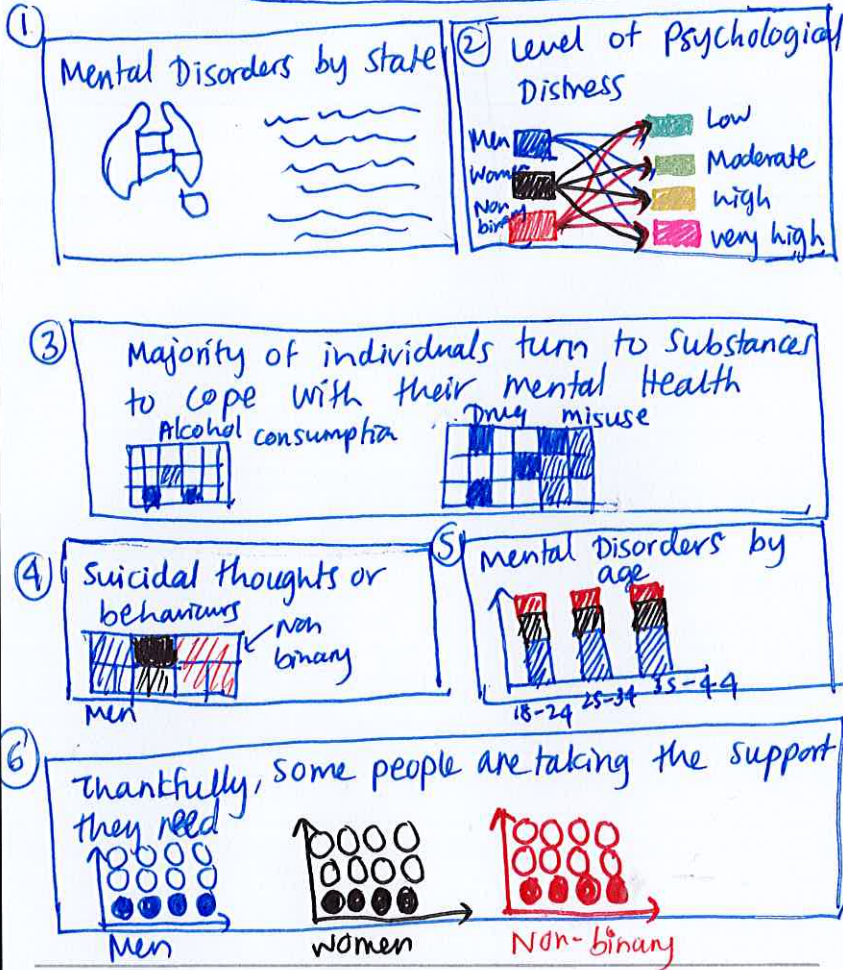 1
Mental Disorders by state
2
Level of Psychological
Distress
Men
Women
Non
binary
Low
Moderate
high
very high
3
Majority of individuals turn to substances
to cope with their mental Health
Alcohol consumption
Drug misuse
4
Suicidal thoughts or
behaviours
Non
binary
Men
5
Mental Disorders by
age
18-24 25-34 35-44
6
Thankfully, some people are taking the support
they need
Men
Women
Non-binary